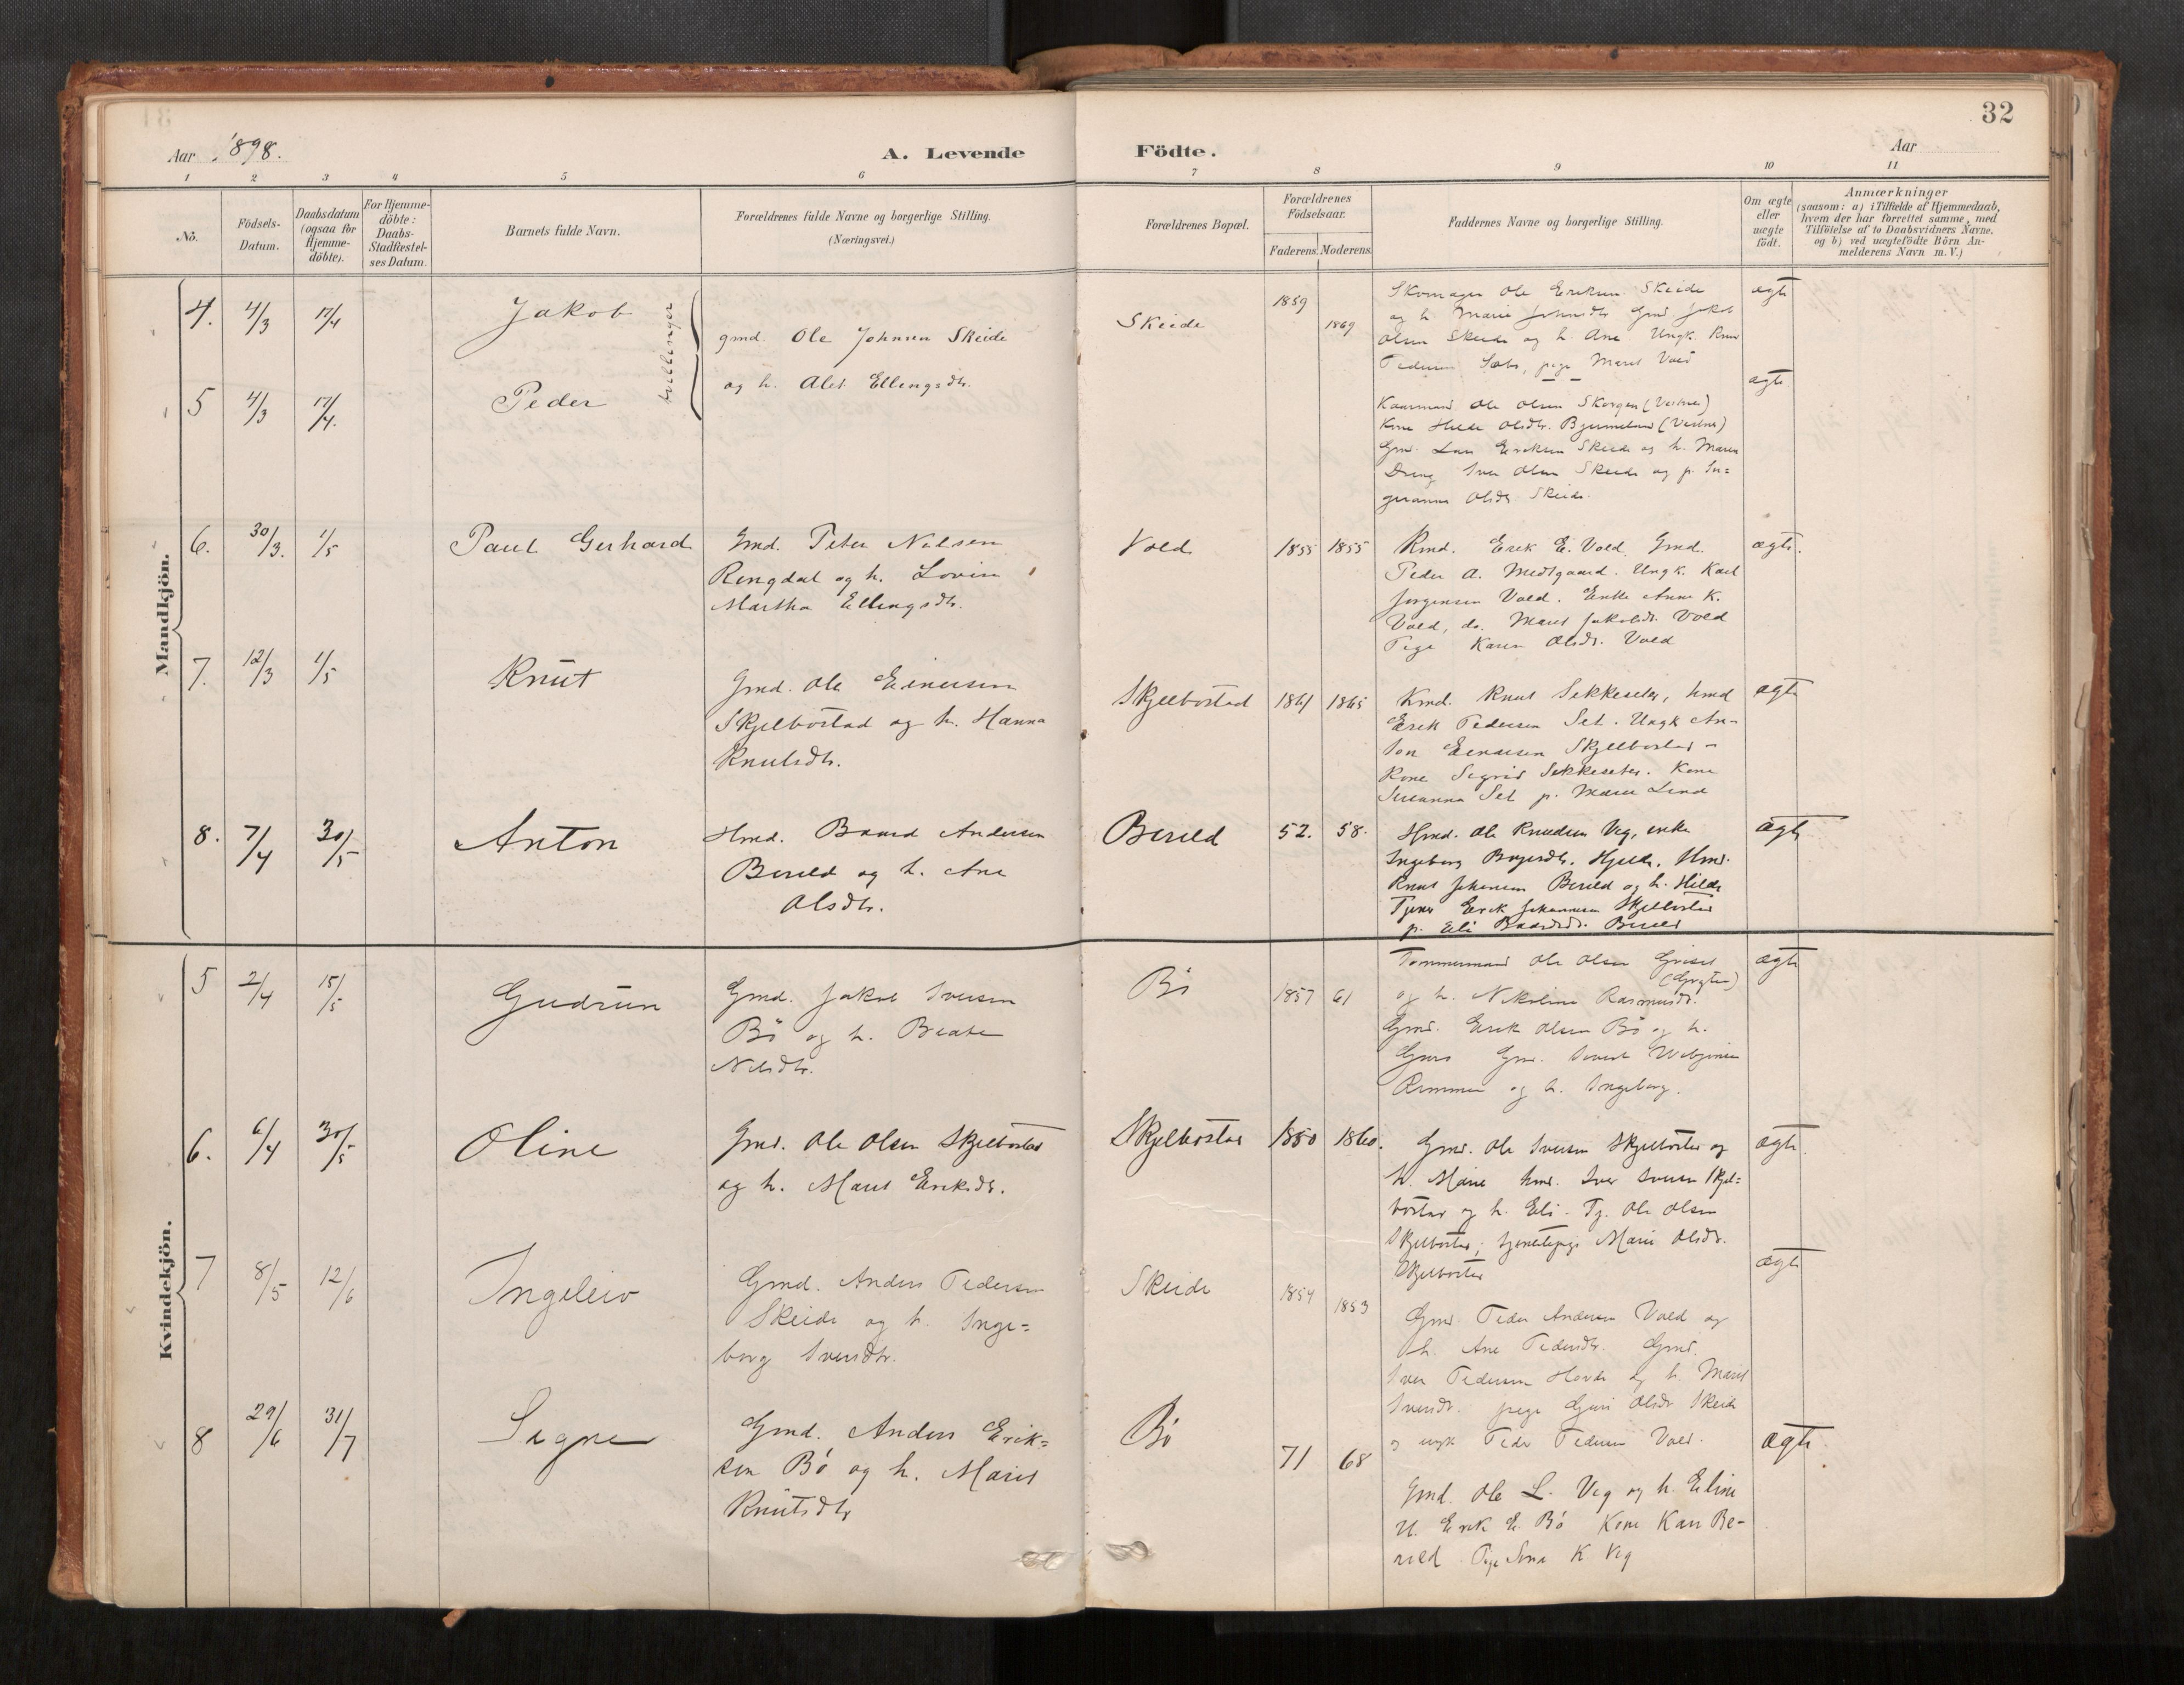 32
Aar 1898.
A. Levende
Födte.
Aar
1 2 3 4 5 6 7 8 9 10 11
No.
Födsels-Datum.
Daabsdatum (ogsaa for Hjemme-döbte).
For Hjemme-döbte: Daabs-Stadfæstel-ses Datum.
Barnets fulde Navn.
Forældrenes fulde Navne og borgerlige Stilling.
(Næringsvei.)
Forældrenes Bopæl.
Forældrenes Födselsaar.
Faderens. Moderens.
Faddernes Navne og borgerlige Stilling.
Om ægte eller uægte födt.
Anmærkninger
(saasom: a) i Tilfælde af Hjemmedaab, hvem der har forrettet samme, med Tilföielse af to Daabsvidners Navne, og b) ved uægtefödte Börn An-melderens Navn m.V.)
Mandkjön.
4. 4/3 17/4 Jakob
tvillinger
gmd. Ole Johnsen Skeide
og h. Alet Ellingsdtr.
Skeide 1859 1869
Skomager Ole Eriksen Skeide
og h. Marie Gmd. Jakob
Olsen Skeide og h. Ane Ungk.
Pedersen pige Marit Vold
ægte
5 4/3 17/4. Peder
Kaarmand Ole Olsen Skorgen (Vestnes)
Kone Olsdtr. (Vestnes)
Gmd. Lars Eriksen Skeide og h. Maren
Dreng Iver Olsen Skeide og p. In=
Olsdtr. Skeide.
ægte
6. 30/3. 1/5 Paul Gerhard
Gmd. Peter Nilsen
Ringdal og h. Lovise
Martha Ellingsdtr.
Vold 1855 1855
Kmd. Erik E. Vold. Gmd.
Peder A. Midtgaard. Ungk. Karl
Jørgensen Vold. Enke Anne K.
Vold, do. Marit Jakobsdr. Vold
Pige Karen Olsdr. Vold
ægte.
7. 12/3 1/5 Knut
Gmd. Ole Einersen
Skjelbostad og h. Hanna
Knutsdtr.
Skjelbostad 1861 1865
Kmd. Knut Sekkeseter, hmd
Erik Pedersen Set. Ungk An-
ton Einarsen Skjelbostad -
Kone Sigrid Sekkeseter. Kone
Susanna Set p. Maren Lind
ægte
8. 7/4 30/5 Anton
Hmd. Baard Andersen
Berild og h. Ane
Olsdtr.
Berild 52. 58.
Hmd. Ole Knudsen Veg, enke
Ingeborg Hjelde. Hmd.
Knut Johansen Berild og h. Hilda
Tjener Erik Johannesen Skjelbostad
p. Eli Baardsdr. Berild
ægte
Kvindekjön.
5 2/4 15/5 Gudrun
Gmd. Jakob Iversen
Bö og h. Beate
Nilsdtr.
Bö 1857 61
Tømmermand Ole Olsen Griset
(Grytten)
og h. Nikoline Rasmusdr.
Gmd. Erik Olsen Bö og h.
Guro Gmd. Sivert
Rimmen og h. Ingeborg.
ægte
6. 6/4 30/5 Oline
Gmd. Ole Olsen Skjelbostad
og h. Marit Eriksdr.
Skjelbostad 1850 1860.
Gmd. Ole Iversen Skjelbostad og
h. Marie hmd. Iver Iversen Skjel=
bostad og h. Eli. Tj. Ole Olsen
Skjelbostad, tjenestepige Marie Olsdr.
Skjelbostad
ægte.
7 8/5 12/6 Ingeleiv
Gmd. Anders Pedersen
Skeide og h. Inge=
borg Iversdtr.
Skeide 1854 1853
Gmd. Peder Andersen Vold og
h. Ane Pedersdtr. Gmd.
Iver Pedersen Hovde og h. Marit
Iversdr. pige Guri Olsdr Skeide
og ungk Peder Pedersen Vold.
ægte
8 29/6 31/7 Signe
Gmd. Anders Erik=
sen Bö og h. Marit
Knutsdtr
Bö 71 68
Gmd. Ole L. Veg og h. Eline
U. Erik E. Bö Kone Kari Be-
rild Pige K Veg
ægte